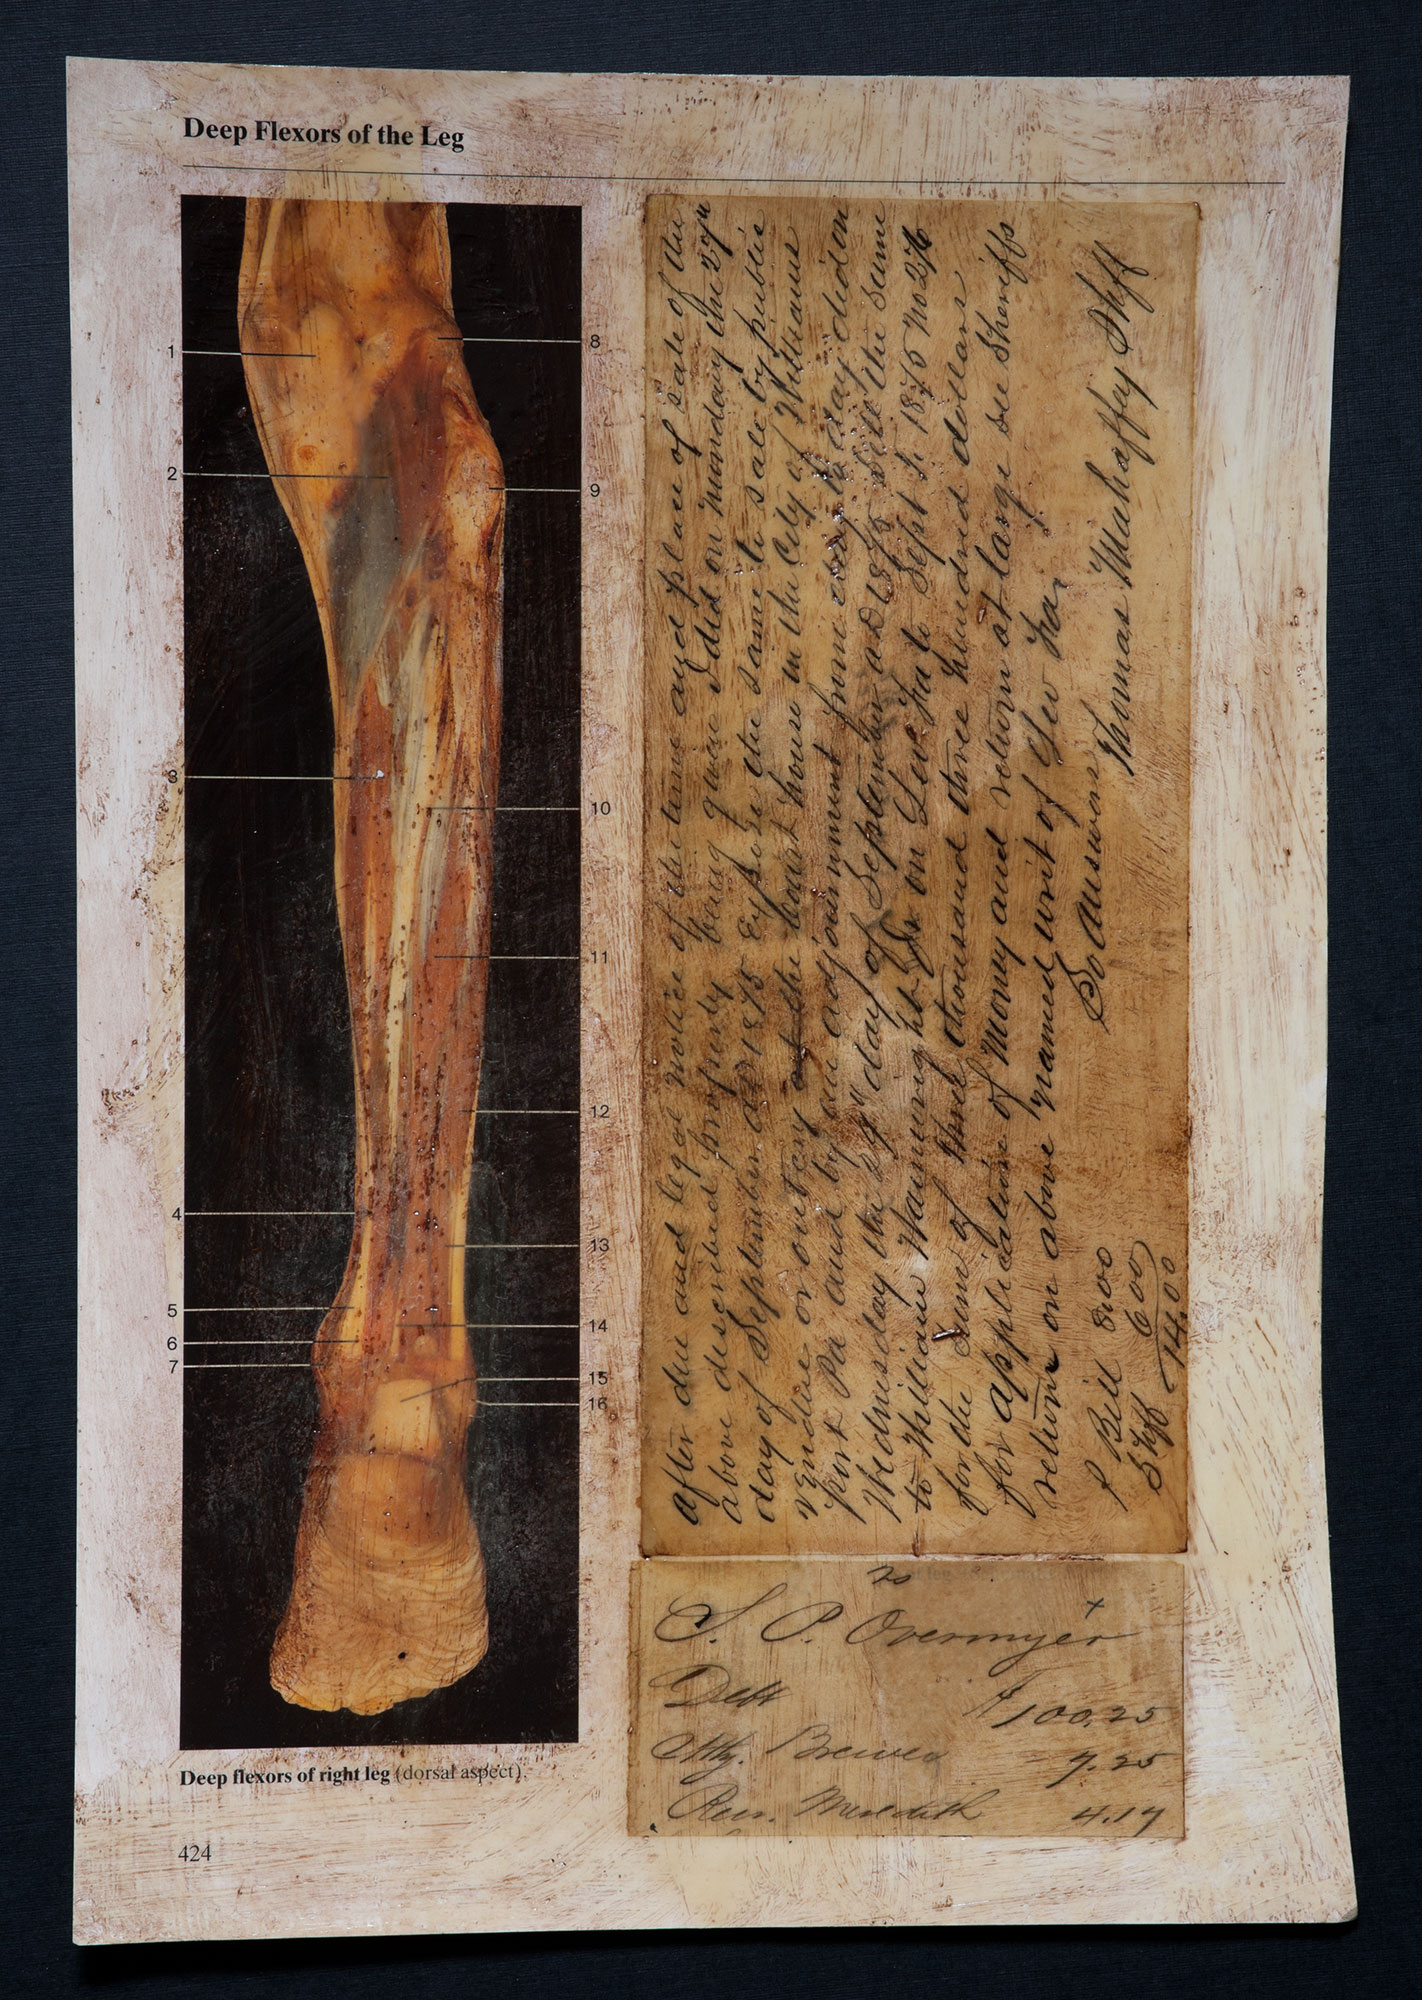 Deep Flexors of the Leg
1
2
3
4
5
6
7
8
9
10
11
12
13
14
15
16
Deep flexors of right leg (dorsal aspect).
424
after due and legal notice of the time and place of sale of the
above described property being given I did on Monday the 27"
day of September AD 1875 expose the same to sale by public
vendue or outcry at the court house in the City of Williams
port Pa and by an adjournment from day to day did on
Wednesday the 29" day of September AD 1875 sell the same
to William Wainwright Jr on Lev Fa to Sept T. 1875 No 276
for the sum of three thousand three hundred dollars
for application of Money and return at large see Sheriffs
return on above named writ of Lev Fa.
So answers
Thomas Mahaffey Shff
P Bill 8.00
Shff 6 00
14.00
to
S. P. Overmyer x
Debt $100.25
Atty. Brewer 7.25
Rec. Meredith 4.17